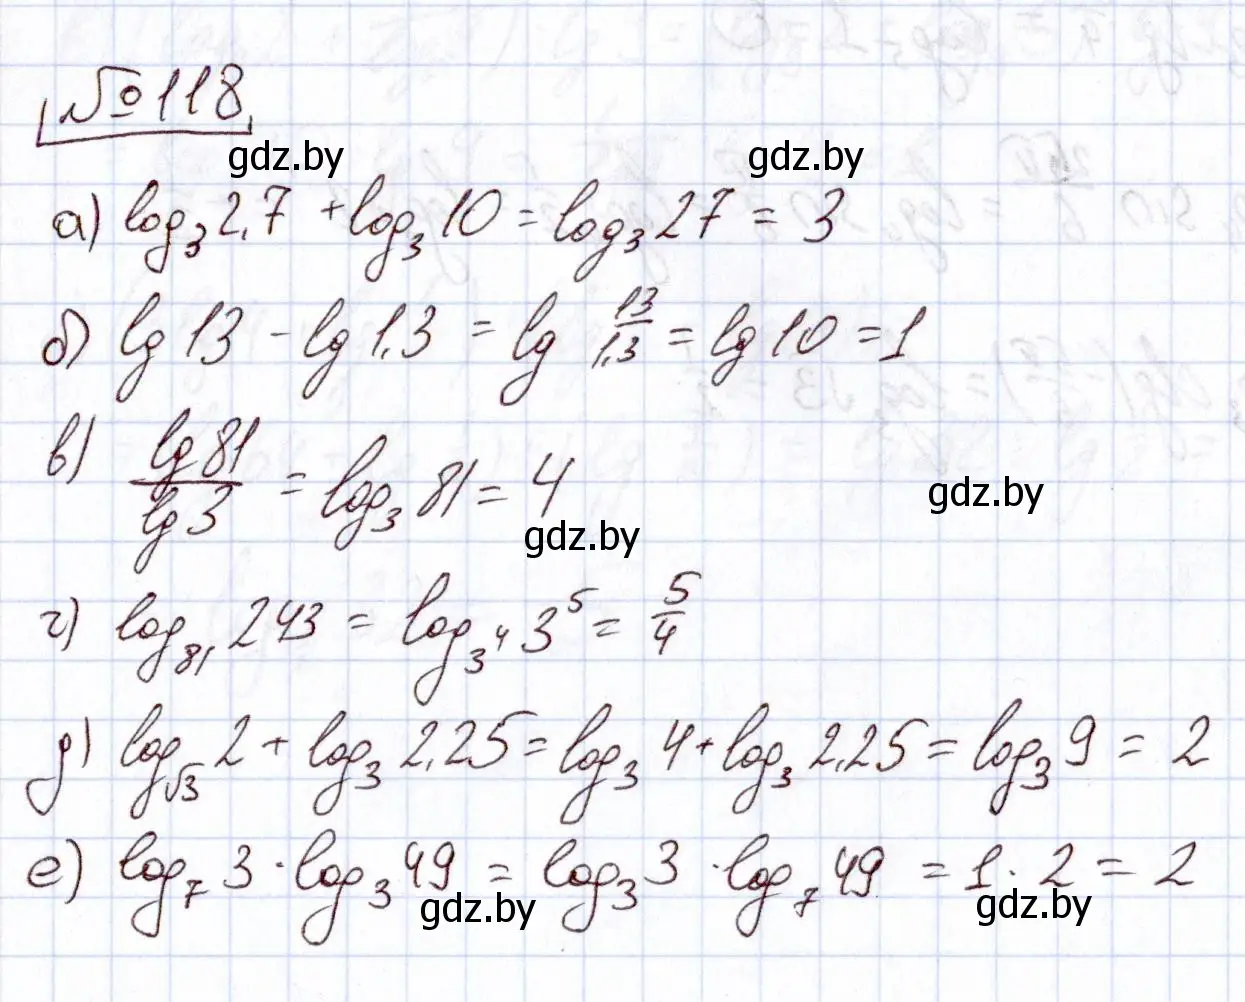 №118
gdz.by gdz.by
а) log₃2,7 + log₃10 = log₃27 = 3
б) lg13 - lg1,3 = lg 13/1,3 = lg10 = 1
в) lg81/lg3 = log₃81 = 4
gdz.by
gdz.by
г) log₈₁243 = log₃⁴3⁵ = 5/4
д) log√₃2 + log₃2,25 = log₃4 + log₃2,25 = log₃9 = 2
е) log₇3 · log₃49 = log₃3 · log₇49 = 1 · 2 = 2
gdz.by gdz.by